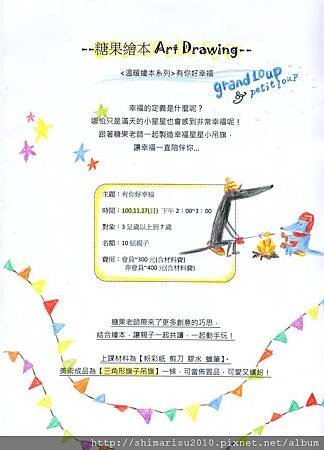 --糖果繪本 Art Drawing--
<溫暖繪本系列>有你好幸福
grand loup
& petit loup
幸福的定義是什麼呢？
哪怕只是滿天的小星星也會感到非常幸福呢！
跟著糖果老師一起製造幸福星星小吊旗，
讓幸福一直陪伴你...
主題：有你好幸福
時間：100.11.27(日) 下午 2：00~3：00
對象：3 足歲以上到 7 歲
名額：10 組親子
費用：會員~300 元(含材料費)
非會員~400 元(含材料費)
糖果老師帶來了更多創意的巧思，
結合繪本，讓親子一起共讀，一起動手玩！
上課材料為【粉彩紙 剪刀 膠水 蠟筆】，
美術成品為【三角形旗子吊旗】一條，可當佈置品，可愛又繽紛！
http://shimarisu2010.pixnet.net/album